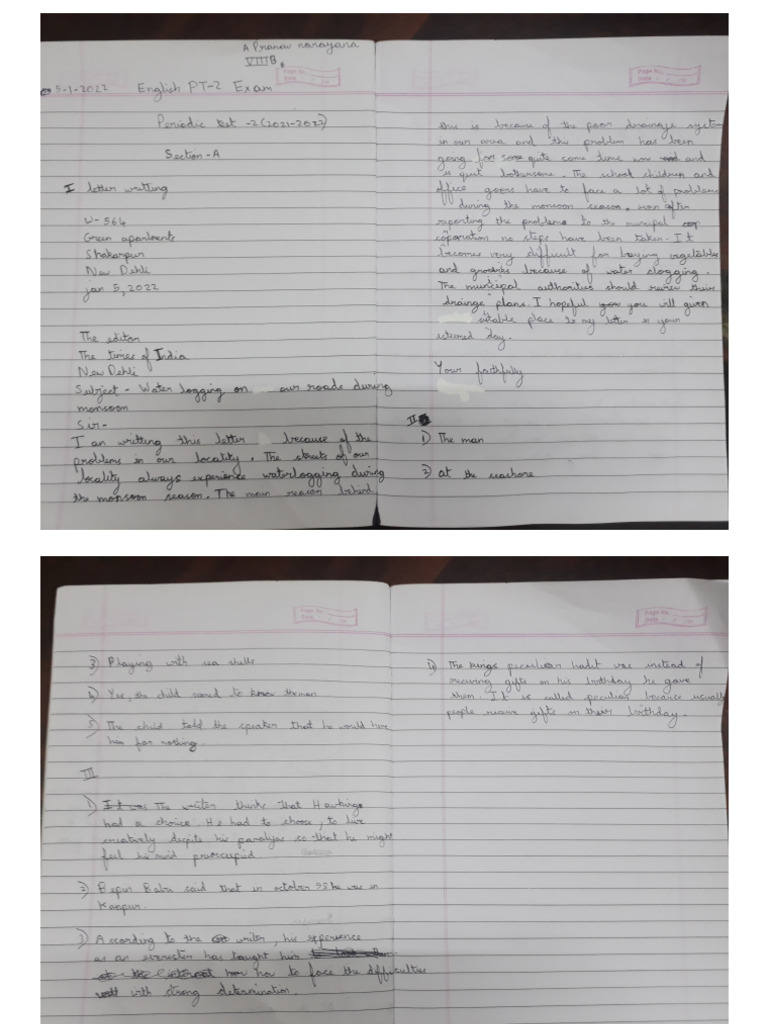 A Pranav narayana
VIII B.
5-1-2022 English PT-2 Exam
Page No.
Date
Periodic test -2 (2021-2022)
Section -A
I letter writting
W-564
Green apartments
Shakarpur
New Dehli
jan 5, 2022
The editor
The times of India
New Dehli
Subject - Water logging on our roads during
monsoon
Sir-
I an writting this letter because of the
problems in our locality. The streets of our
locality always experience waterlogging during
the monsoon season. The main reason behind
Page No.
Date
this is because of the poor drainage system
in our area and the problem has been
going for some quite come time and
is quit bothersome. The school children and
office goers have to face a lot of problems
during the monsoon season. even after
reporting the problems to the municipal
coporation no steps have been taken. It
becomes very difficult for buying vegetables
and groceries because of water clogging.
The municipal authorities should review their
drainge plans. I hopeful you will given
uitable place to my letter in your
esteemed day.
Your faithfully
II
1) The man
2) at the seashore
Page No.
Date
3) Playing with sea shells
4) Yes, the child saved to know the man
5) The child told the speaker that he would have
him for nothing.
III
1) It was The writer thinks that Hawkings
had a choice. He had to choose, to live
creatively despite his paralysis so that he might
feel he preoccupied
2) Bepin Babu said that in october 58 he was in
Kanpur.
3) According to the writer, his experience
as an has taught him
how to face the difficulties
with strong determination.
Page No.
Date
4) The kings peculiar habit was instead of
receiving gifts on his birthday he gave
them. It is called peculiar because usually
people receive gifts on their birthday.